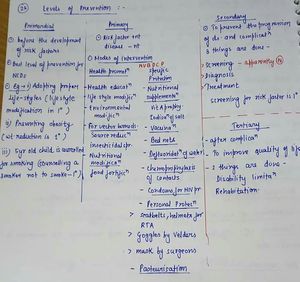 Levels of Prevention :-
Primordial
① before the development
of risk factors
② best level of prevention for
NCDs
③ Eg → i) Adopting proper
life-styles (lifestyle
modification is 1°)
ii) Preventing obesity-
(wt reduction is 1°)
iii) 5yr old child is counselled
for smoking (counselling a
smoker not to smoke-1°)
Primary
① Risk factor +nt
disease - nt
② Modes of intervention
Health Promot
- Health educat
- Life style
modific
- Environmental
modific
- For vector borne
source reduc
insecticidal
- Nutritional
modifica
food fortific
Specific
Protection
- Nutritional
supplement
Vit A prophy
Iodisa of salt
- Vaccina
- Bed nets
- Defluoridat of water
- chemoprophylaxis
of contacts
- Condoms for HIV
- Personal Protec
> seatbelts, helmets for
RTA
> Goggles by Welders
> mask by surgeons
- Pasteurisation
Secondary
① To prevent the progression
of dis and complicat
3 things are done -
Screening - apparently
Diagnosis
Treatment
screening for risk factor is 1°
Tertiary
- after complica
- To improve quality of life
- 2 things are done -
Disability limita
Rehabilitation